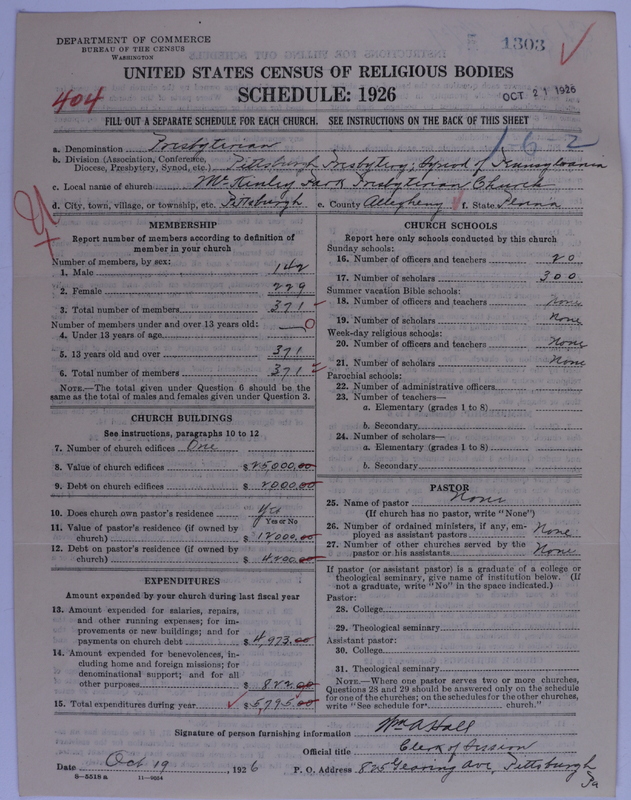 DEPARTMENT OF COMMERCE
BUREAU OF THE CENSUS
WASHINGTON
1303
UNITED STATES CENSUS OF RELIGIOUS BODIES
SCHEDULE: 1926
OCT 21 1926
404
FILL OUT A SEPARATE SCHEDULE FOR EACH CHURCH. SEE INSTRUCTIONS ON THE BACK OF THIS SHEET
1-6-2
a. Denomination Presbyterian
b. Division (Association, Conference, Diocese, Presbytery, Synod, etc.) Pittsburgh Presbytery; Synod of Pennsylvania
c. Local name of church McKinley Park Presbyterian Church
d. City, town, village, or township, etc. Pittsburgh e. County Allegheny f. State Penna
MEMBERSHIP
Report number of members according to definition of
member in your church
Number of members, by sex:
1. Male 142
2. Female 229
3. Total number of members 371
Number of members under and over 13 years old:
4. Under 13 years of age 0
5. 13 years old and over 371
6. Total number of members 371
NOTE.—The total given under Question 6 should be the
same as the total of males and females given under Question 3.
CHURCH BUILDINGS
See instructions, paragraphs 10 to 12
7. Number of church edifices One
8. Value of church edifices $25,000.00
9. Debt on church edifices $2000.00
10. Does church own pastor's residence Yes
Yes or No
11. Value of pastor's residence (if owned by
church) $12000.00
12. Debt on pastor's residence (if owned by
church) $4200.00
EXPENDITURES
Amount expended by your church during last fiscal year
13. Amount expended for salaries, repairs,
and other running expenses; for im-
provements or new buildings; and for
payments on church debt $4,973.00
14. Amount expended for benevolences, in-
cluding home and foreign missions; for
denominational support; and for all
other purposes $822.00
15. Total expenditures during year $5,795.00
CHURCH SCHOOLS
Report here only schools conducted by this church
Sunday schools:
16. Number of officers and teachers 20
17. Number of scholars 300
Summer vacation Bible schools:
18. Number of officers and teachers None
19. Number of scholars None
Week-day religious schools:
20. Number of officers and teachers None
21. Number of scholars None
Parochial schools:
22. Number of administrative officers
23. Number of teachers—
a. Elementary (grades 1 to 8)
b. Secondary
24. Number of scholars—
a. Elementary (grades 1 to 8)
b. Secondary
PASTOR
25. Name of pastor None
(If church has no pastor, write "None")
26. Number of ordained ministers, if any, em-
ployed as assistant pastors None
27. Number of other churches served by the
pastor or his assistants None
If pastor (or assistant pastor) is a graduate of a college or
theological seminary, give name of institution below. (If
not a graduate, write "No" in the space indicated.)
Pastor:
28. College
29. Theological seminary
Assistant pastor:
30. College
31. Theological seminary
NOTE.—Where one pastor serves two or more churches,
Questions 28 and 29 should be answered only on the schedule
for one of the churches; on the schedules for the other churches,
write "See schedule for church."
Signature of person furnishing information Wm A Hall
Official title Clerk of Session
Date Oct 19, 1926 P. O. Address 825 Gearing Ave, Pittsburgh
Pa
8-5518 a 11-9054